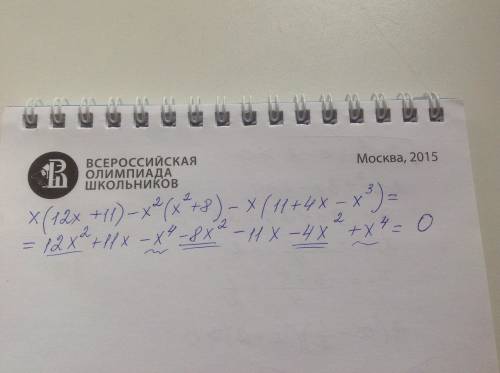 ВСЕРОССИЙСКАЯ
ОЛИМПИАДА
ШКОЛЬНИКОВ
Москва, 2015
x(12x+11)-x²(x²+8)-x(11+4x-x³)=
=12x²+11x-x⁴-8x²-11x-4x²+x⁴=0